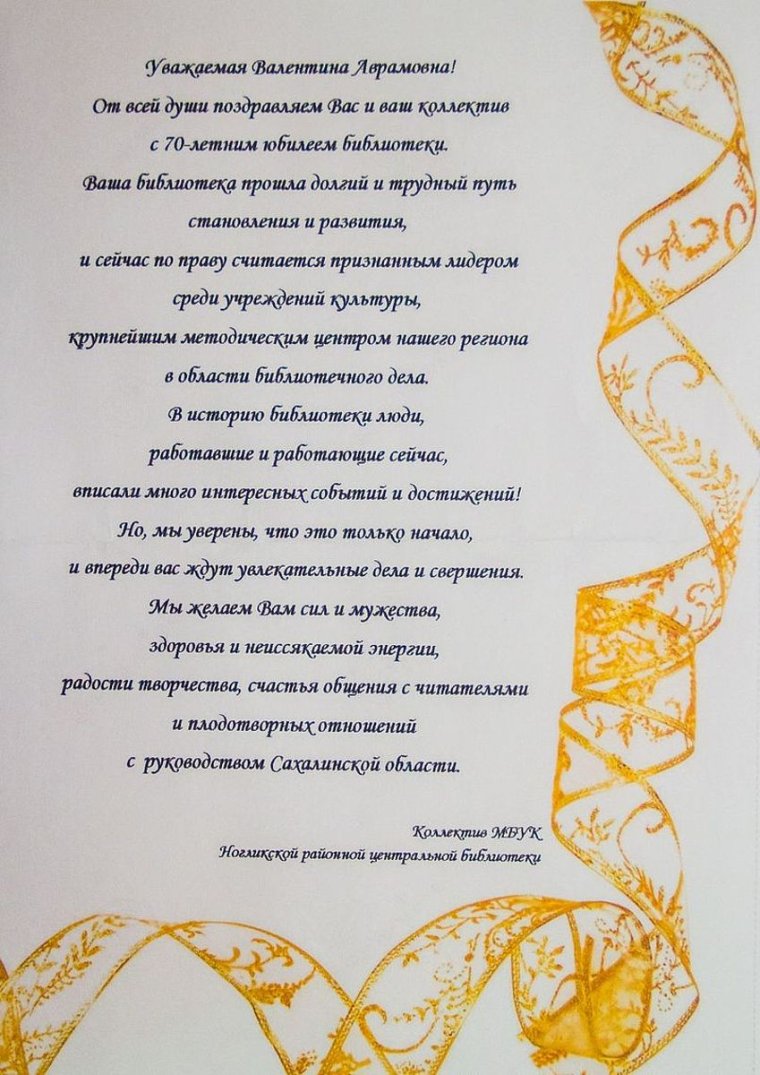 Уважаемая Валентина Аврамовна!
От всей души поздравляем Вас и ваш коллектив
с 70-летним юбилеем библиотеки.
Ваша библиотека прошла долгий и трудный путь
становления и развития,
и сейчас по праву считается признанным лидером
среди учреждений культуры,
крупнейшим методическим центром нашего региона
в области библиотечного дела.
В историю библиотеки люди,
работавшие и работающие сейчас,
вписали много интересных событий и достижений!
Но, мы уверены, что это только начало,
и впереди вас ждут увлекательные дела и свершения.
Мы желаем Вам сил и мужества,
здоровья и неиссякаемой энергии,
радости творчества, счастья общения с читателями
и плодотворных отношений
с руководством Сахалинской области.
Коллектив МБУК
Ногликской районной центральной библиотеки